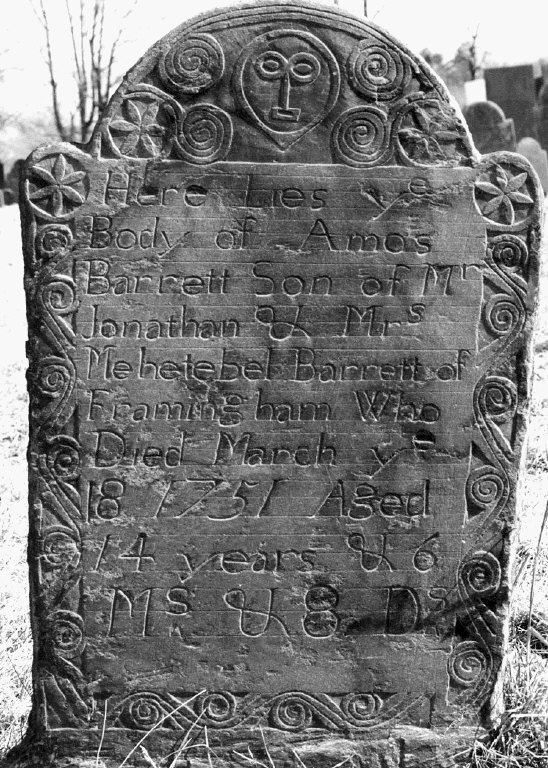 Here Lies ye
Body of Amos
Barrett Son of Mr
Jonathan & Mrs
Mehetebel Barrett of
Framingham Who
Died March ye
18 1751 Aged
14 years & 6
Ms & 8 Ds